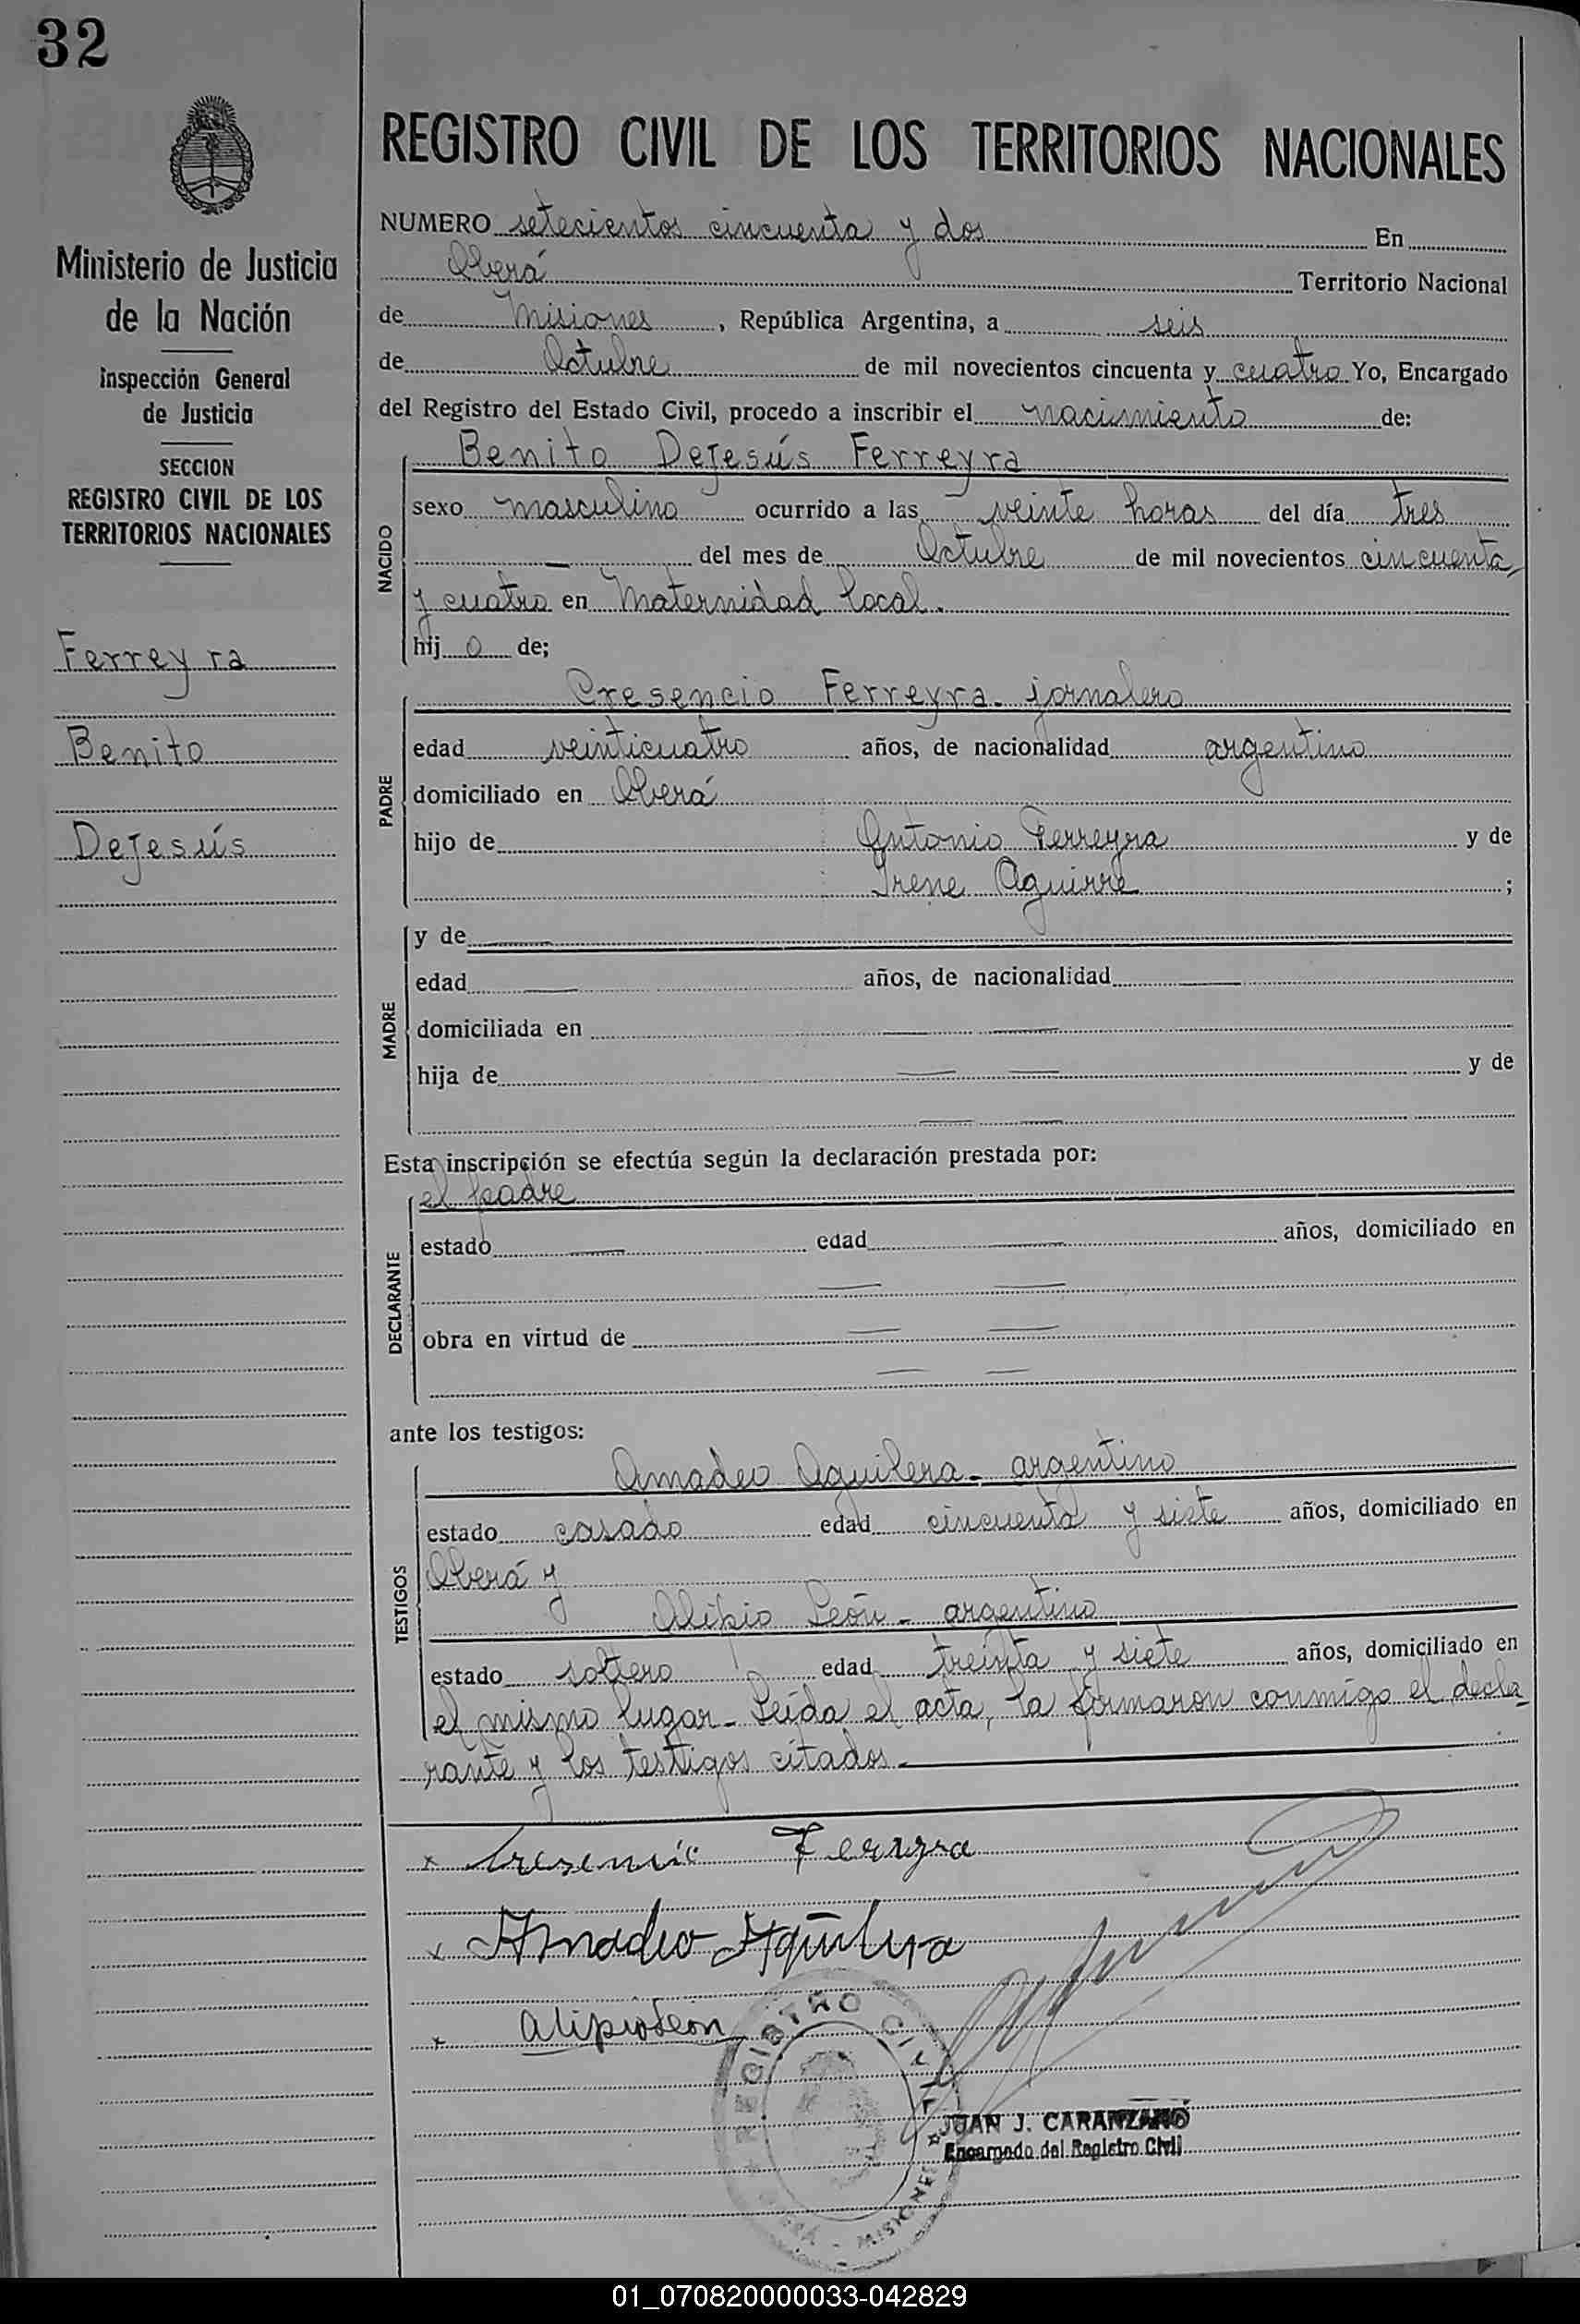 32
Ministerio de Justicia
de la Nación
Inspección General
de Justicia
SECCION
REGISTRO CIVIL DE LOS
TERRITORIOS NACIONALES
Ferreyra
Benito
DeJesús
REGISTRO CIVIL DE LOS TERRITORIOS NACIONALES
NUMERO setecientos cincuenta y dos En
Oberá Territorio Nacional
de Misiones, República Argentina, a seis
de Octubre de mil novecientos cincuenta y cuatro Yo, Encargado
del Registro del Estado Civil, procedo a inscribir el nacimiento de:
Benito DeJesús Ferreyra
NACIDO
sexo masculino ocurrido a las veinte horas del día tres
— del mes de Octubre de mil novecientos cincuenta
y cuatro en Maternidad local.
hij o de;
Cresencio Ferreyra - jornalero
PADRE
edad veinticuatro años, de nacionalidad argentino
domiciliado en Oberá
hijo de Antonio Ferreyra y de
Irene Aguirre ;
MADRE
y de —
edad — años, de nacionalidad —
domiciliada en — —
hija de — — y de
— —
Esta inscripción se efectúa según la declaración prestada por:
el padre
DECLARANTE
estado — edad — años, domiciliado en
— —
obra en virtud de — —
— —
ante los testigos:
Amadeo Aguilera - argentino
TESTIGOS
estado casado edad cincuenta y siete años, domiciliado en
Oberá y
Alipio León - argentino
estado soltero edad treinta y siete años, domiciliado en
el mismo lugar - Leída el acta, la firmaron conmigo el decla-
rante y los testigos citados.
x Cresencio Ferreyra
x Amadeo Aguilera
x Alipio León
REGISTRO CIVIL
OBERÁ - MISIONES
JUAN J. CARANZANO
Encargado del Registro Civil
01_070820000033-042829